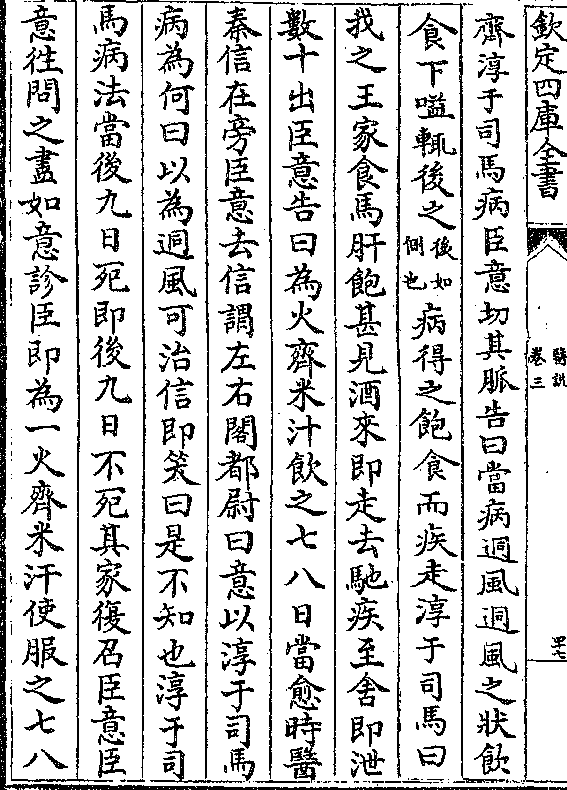 欽定四庫全書
醫説
卷三
四七
齊淳于司馬病臣意切其脈告曰當病迵風迵風之狀飲
食下嗌輒後之後如厠也病得之飽食而疾走淳于司馬曰
我之王家食馬肝飽甚見酒來即走去馳疾至舍即泄
數十出臣意告曰為火齊米汁飲之七八日當愈時醫
秦信在旁臣意去信謂左右閣都尉曰意以淳于司馬
病為何曰以為迵風可治信即笑曰是不知也淳于司
馬病法當後九日死即後九日不死其家復召臣意臣
意徃問之盡如意診臣即為一火齊米汗使服之七八